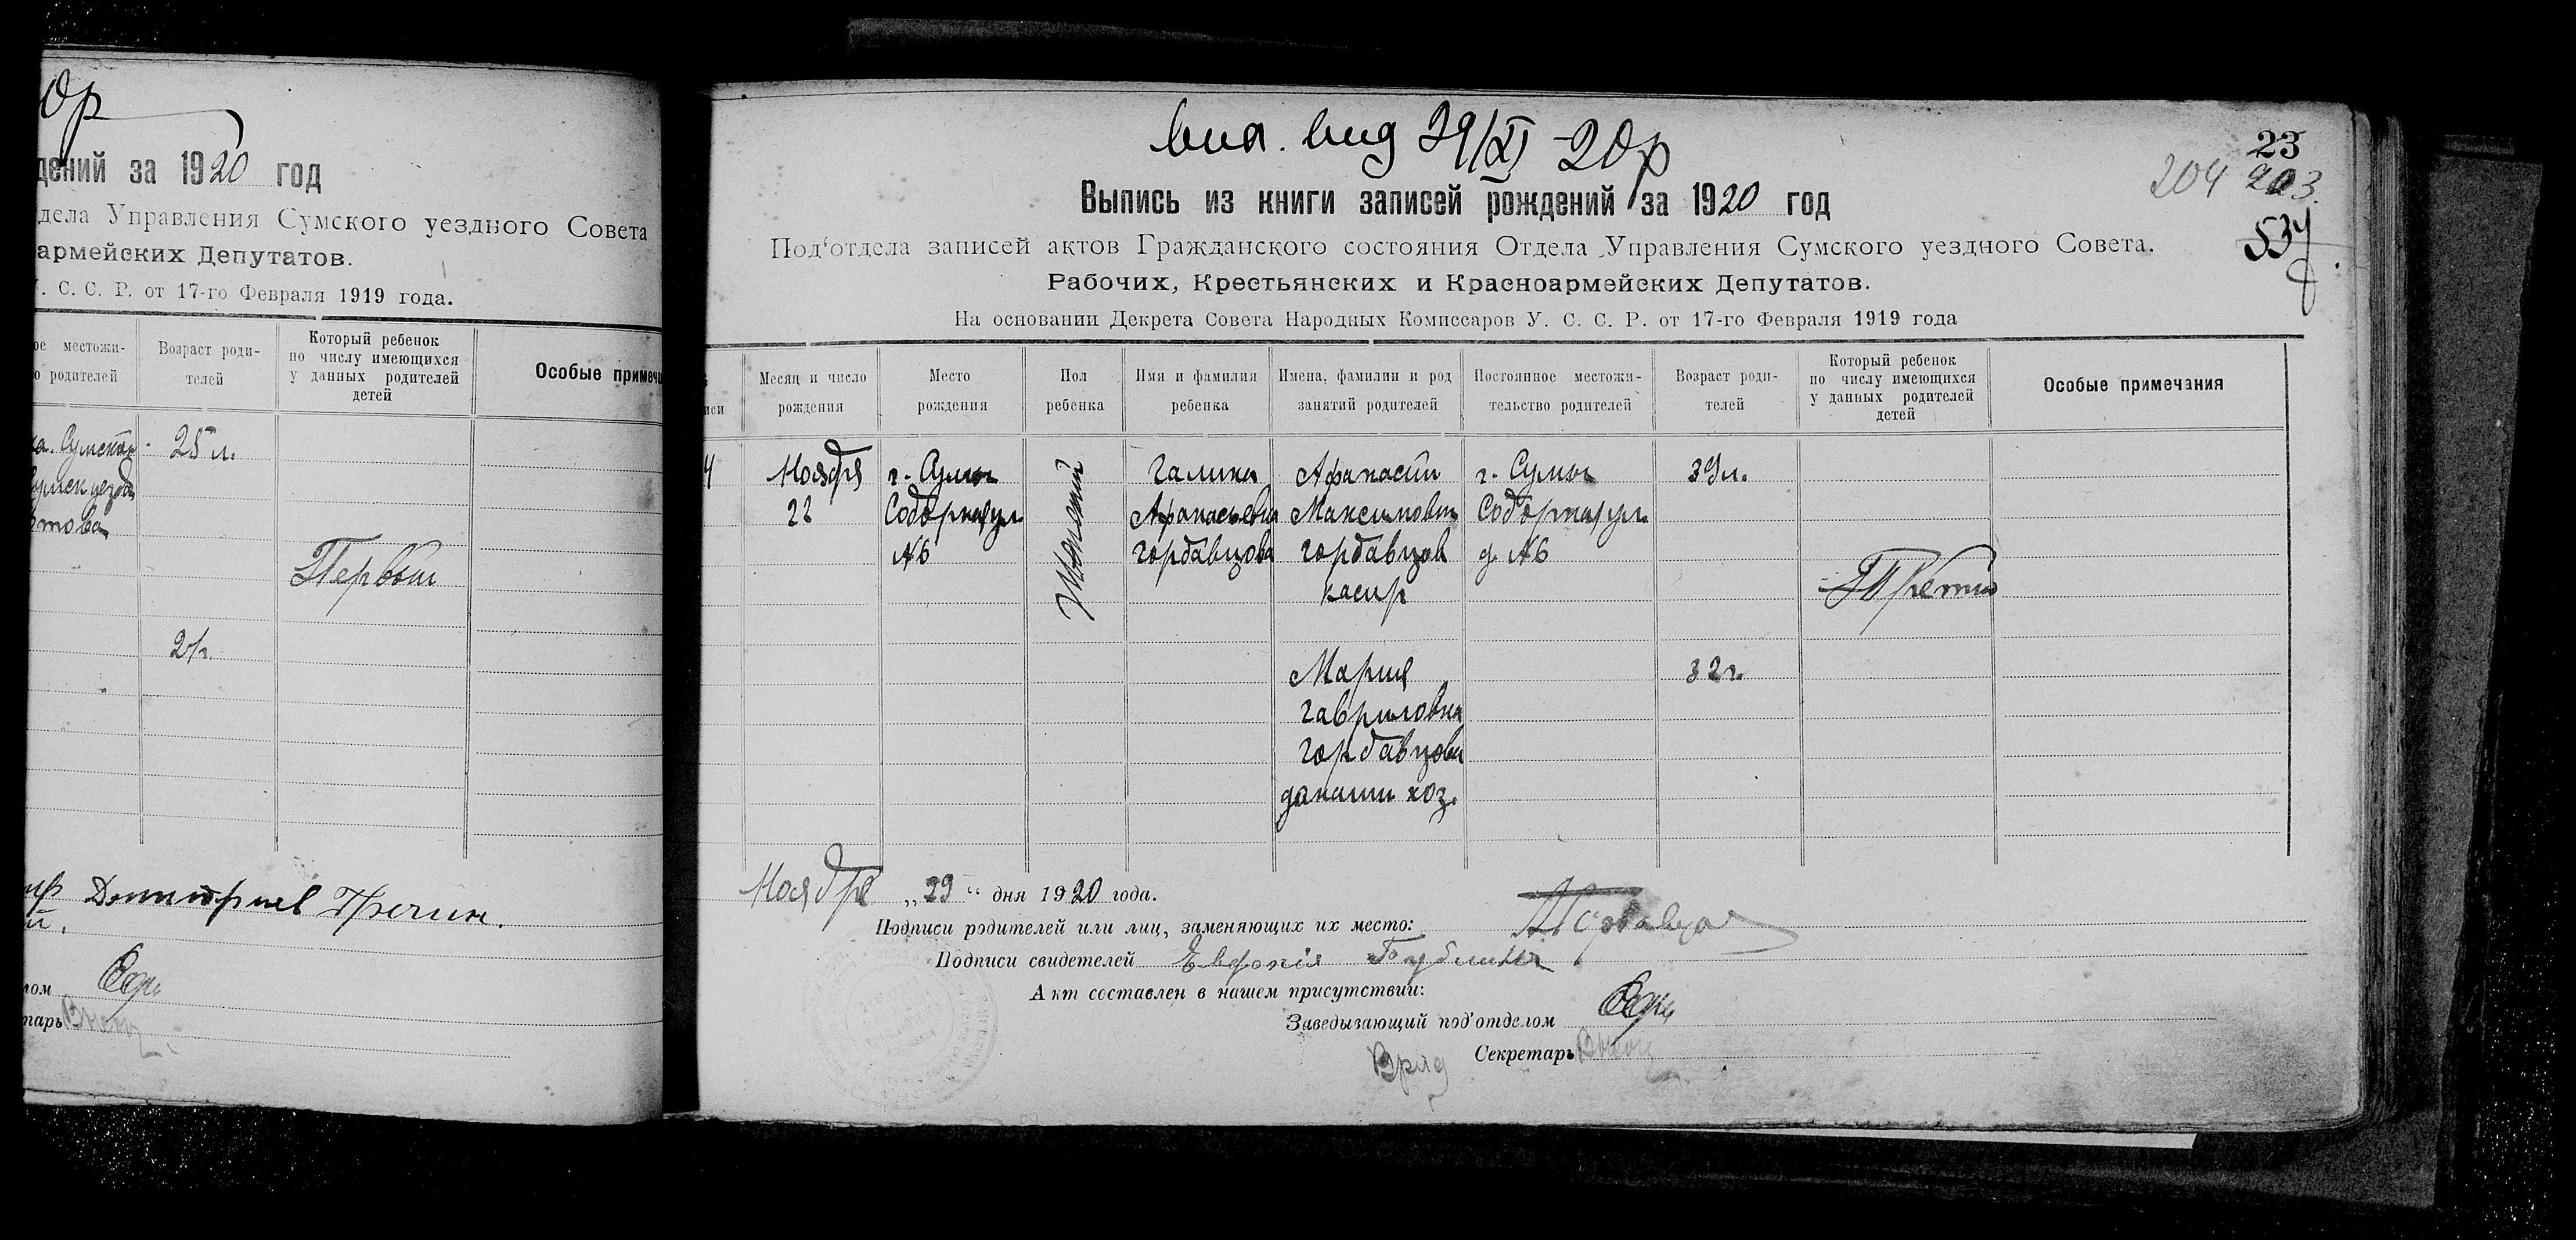 0р
дений за 1920 год
дела Управления Сумского уездного Совета
армейских Депутатов.
С. С. Р. от 17-го Февраля 1919 года.
местожи-
родителей
Возраст роди-
телей
Который ребенок
по числу имеющихся
у данных родителей
детей
Особые примеча
25 л.
Первый
21г.
Дмитриев
тарь
вид 29/XI-20р
23
204 203.
534
Выпись из книги записей рождений за 1920 год
Под'отдела записей актов Гражданского состояния Отдела Управления Сумского уездного Совета.
Рабочих, Крестьянских и Красноармейских Депутатов.
На основании Декрета Совета Народных Комиссаров У. С. С. Р. от 17-го Февраля 1919 года
Месяц и число
рождения
Место
рождения
Пол
ребенка
Имя и фамилия
ребенка
Имена, фамилии и род
занятий родителей
Постоянное местожи-
тельство родителей
Возраст роди-
телей
Который ребенок
по числу имеющихся
у данных родителей
детей
Особые примечания
Ноября
22
г. Сумы
Соборная ул.
№6
Женский
Галина
Афанасьевна
Горбавцова
Афанасий
Максимович
Горбавцов
касир
Мария
Гавриловна
Горбавцова
домаши хоз.
г. Сумы
Соборная ул.
д. №6
39л.
32г.
Третий
Ноября „29“ дня 1920 года.
Подписи родителей или лиц, заменяющих их место:
Подписи свидетелей Евфросія
Акт составлен в нашем присутствии:
Заведызающий под'отделом
Врид Секретарь